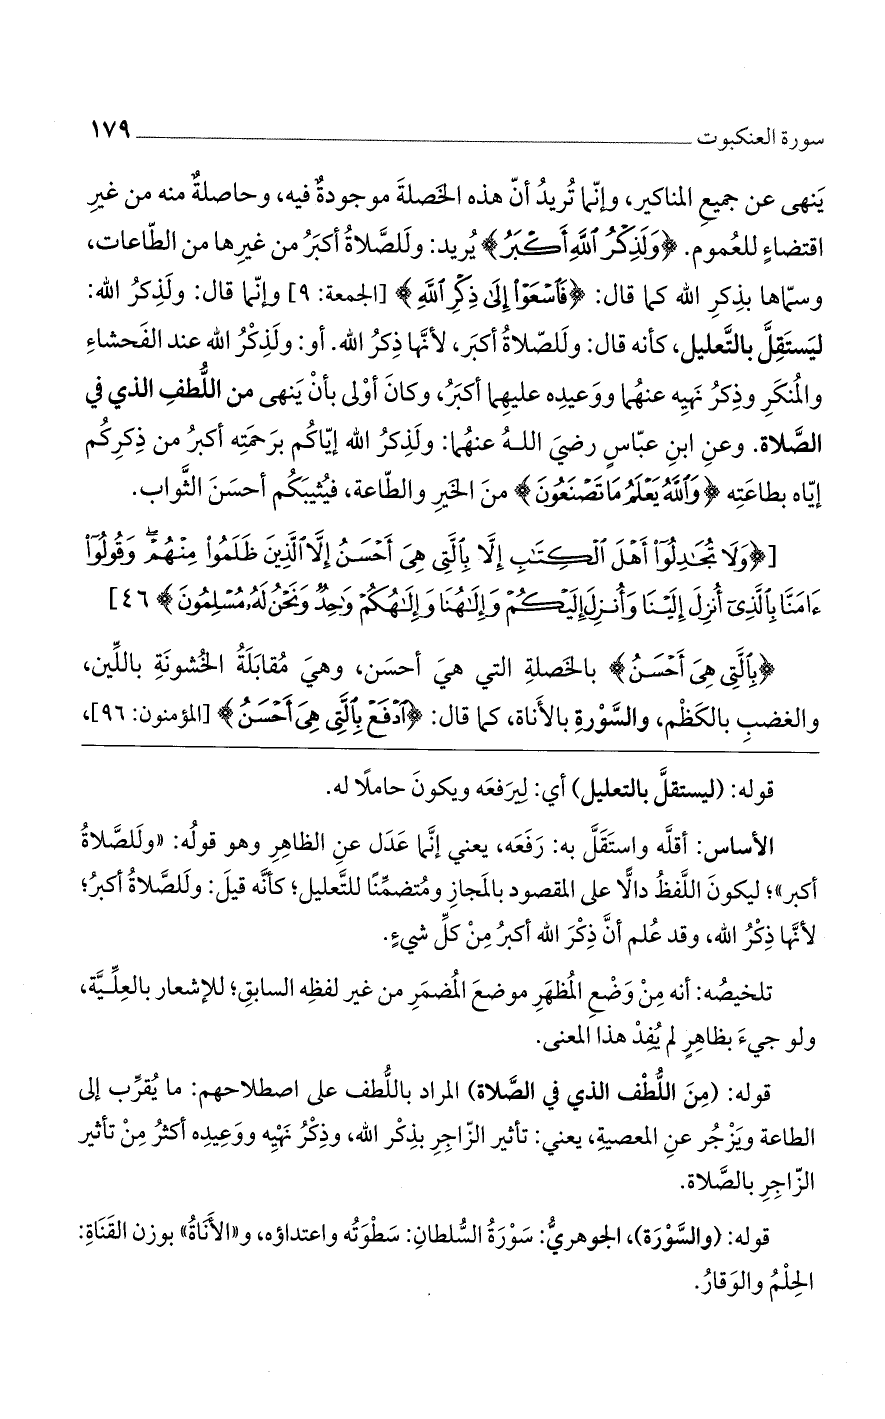 سورة العنكبوت ١٧٩
يَنهى عن جميعِ المناكير، وإنّما تُريدُ أنّ هذه الخَصلةَ موجودةٌ فيه، وحاصلةٌ منه من غيرِ
اقتضاءٍ للعُموم. ﴿وَلَذِكْرُ ٱللَّهِ أَكْبَرُ﴾ يُريد: ولَلصَّلاةُ أكبَرُ من غيرِها من الطّاعات،
وسمّاها بذِكرِ الله كما قال: ﴿فَٱسْعَوْا۟ إِلَىٰ ذِكْرِ ٱللَّهِ﴾ [الجمعة: ٩] وإنّما قال: ولَذِكرُ الله:
ليَستَقِلَّ بالتَّعليل، كأنه قال: ولَلصّلاةُ أكبَر، لأنّها ذِكرُ الله. أو: ولَذِكْرُ الله عند الفَحشاءِ
والمُنكَرِ وذِكرُ نَهيِه عنهُما ووَعيدِه عليهِما أكبَرُ، وكانَ أوْلى بأنْ يَنهى من اللُّطفِ الذي في
الصَّلاة. وعنِ ابنِ عبّاسٍ رضيَ اللهُ عنهُما: ولَذِكرُ الله إيّاكُم برَحمَتِه أكبرُ من ذِكرِكُم
إيّاه بطاعَتِه ﴿وَٱللَّهُ يَعْلَمُ مَا تَصْنَعُونَ﴾ منَ الخَيرِ والطّاعة، فيُثيبَكُم أحسَنَ الثَّواب.
[﴿وَلَا تُجَٰدِلُوٓا۟ أَهْلَ ٱلْكِتَٰبِ إِلَّا بِٱلَّتِى هِىَ أَحْسَنُ إِلَّا ٱلَّذِينَ ظَلَمُوا۟ مِنْهُمْ ۖ وَقُولُوٓا۟
ءَامَنَّا بِٱلَّذِىٓ أُنزِلَ إِلَيْنَا وَأُنزِلَ إِلَيْكُمْ وَإِلَٰهُنَا وَإِلَٰهُكُمْ وَٰحِدٌ وَنَحْنُ لَهُۥ مُسْلِمُونَ﴾ ٤٦]
﴿بِٱلَّتِى هِىَ أَحْسَنُ﴾ بالخَصلةِ التي هيَ أحسَن، وهيَ مُقابَلَةُ الخُشونَةِ باللّين،
والغضبِ بالكَظْم، والسَّوْرةِ بالأَناة، كما قال: ﴿ٱدْفَعْ بِٱلَّتِى هِىَ أَحْسَنُ﴾ [المؤمنون: ٩٦]،
قوله: (ليستقلَّ بالتعليل) أي: لِيرَفعَه ويكونَ حاملًا له.
الأساس: أقلَّه واستَقَلَّ به: رَفَعَه، يعني إنَّما عَدَل عنِ الظاهرِ وهو قولُه: «ولَلصَّلاةُ
أكبر»؛ ليكونَ اللَّفظُ دالًّا على المقصود بالمَجازِ ومُتضمِّنًا للتَّعليل؛ كأنَّه قيلَ: ولَلصَّلاةُ أكبرُ؛
لأنَّها ذِكْرُ الله، وقد عُلم أنَّ ذِكْرَ الله أكبرُ مِنْ كلِّ شيءٍ.
تلخيصُه: أنه مِنْ وَضْعِ المُظهَرِ موضعَ المُضمَرِ من غير لفظِه السابقِ؛ للإشعار بالعِلِّيَّة،
ولو جيءَ بظاهرٍ لم يُفِدْ هذا المعنى.
قوله: (مِنَ اللُّطْف الذي في الصَّلاة) المراد باللُّطف على اصطلاحهم: ما يُقرِّب إلى
الطاعة ويَزْجُر عنِ المعصيةِ، يعني: تأثير الزّاجِرِ بذِكْر الله، وذِكْرُ نَهْيِه ووَعِيدِه أكثرُ مِنْ تأثيرِ
الزّاجِرِ بالصَّلاة.
قوله: (والسَّوْرَة)، الجوهريُّ: سَوْرَةُ السُّلطانِ: سَطْوَتُه واعتداؤه، و«الأَنَاةُ» بوزن القَنَاةِ:
الحِلْمُ والوَقارُ.